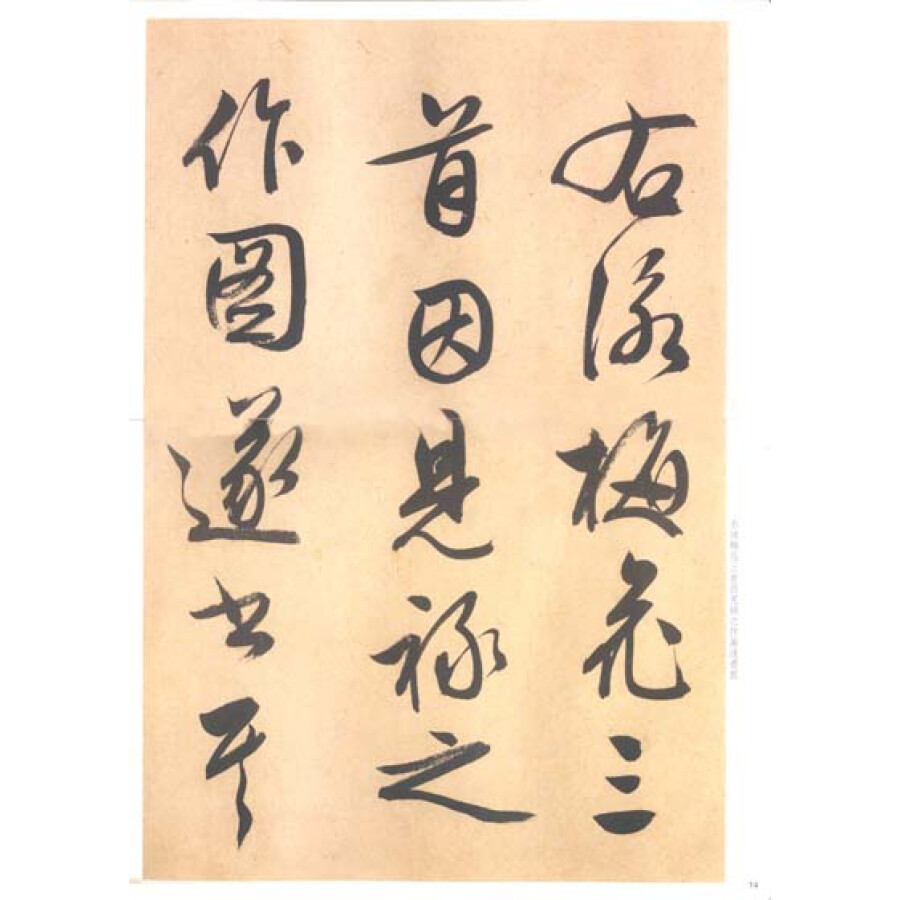 右詠梅花三
首因見祿之
作圖遂書其
14